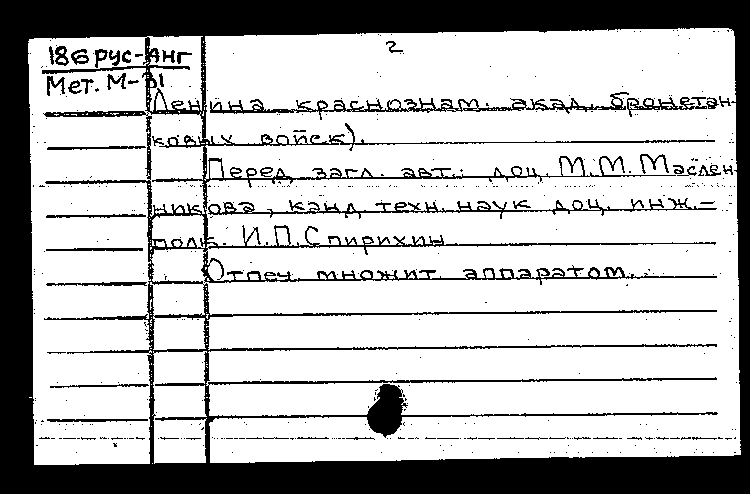 2
186 рус-Анг
Мет. М-31
Ленина краснознам. акад. бронетан-
ковых войск).
Перед загл. авт.: доц. М.М. Маслен-
никова, канд. техн. наук доц. инж.-
полк. И.П. Спирихин
Отпеч. множит. аппаратом.